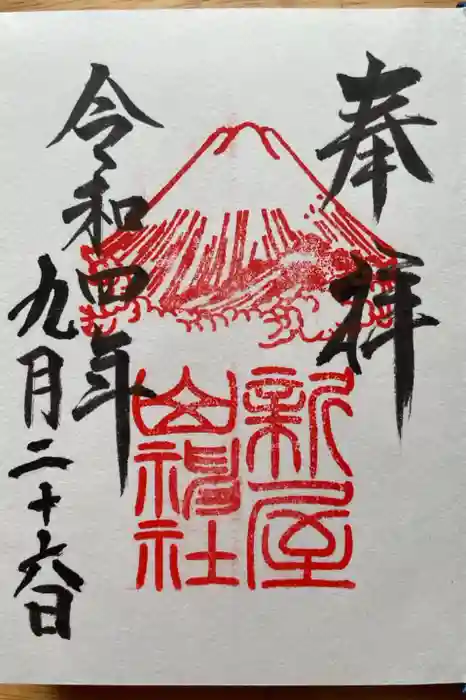 奉拝
新屋
山神社
令和四年
九月二十六日